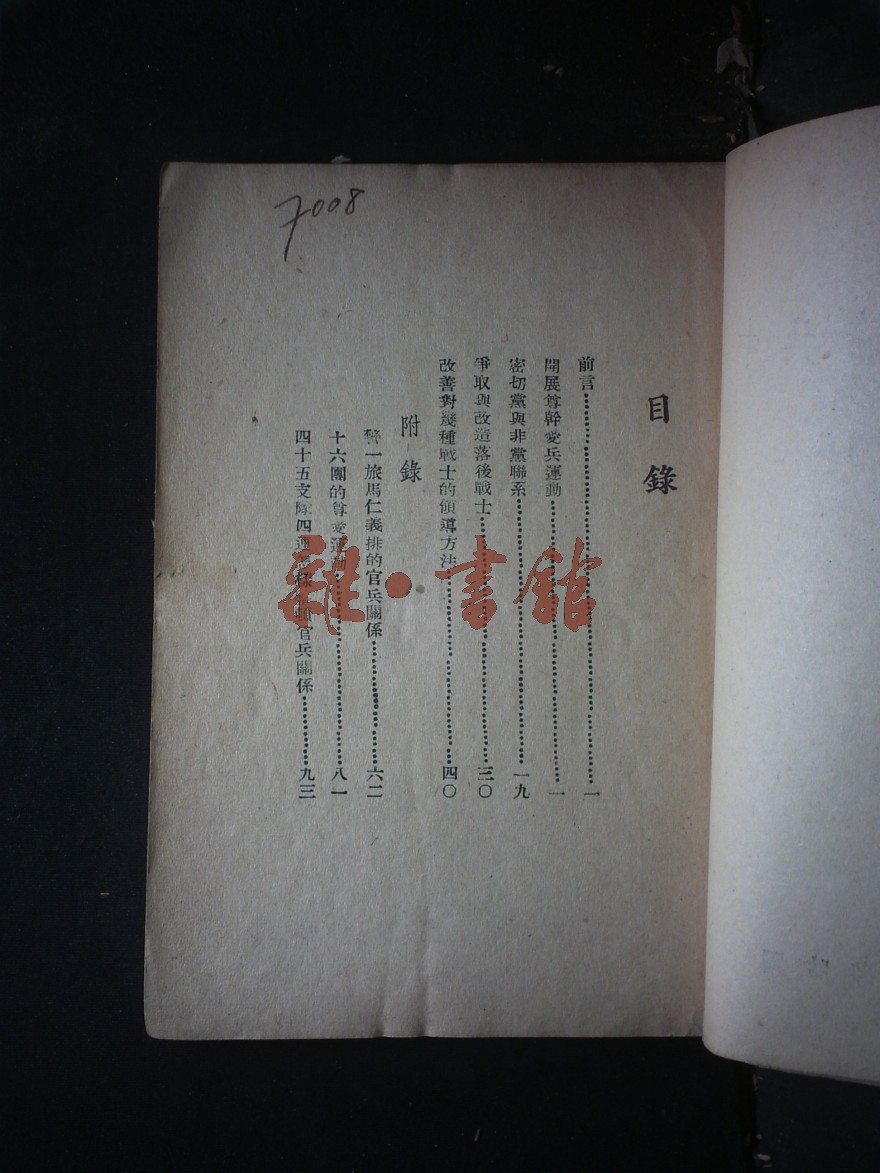 7008
目錄
前言……………一
開展尊幹愛兵運動……………一
密切黨與非黨聯系……………一九
爭取與改造落後戰士……………三〇
改善對幾種戰士的領導方法……………四〇
附錄
警一旅馬仁義排的官兵關係……………六二
十六團的尊愛運動……………八一
四十五支隊四連 官兵關係……………九三
雜·書館